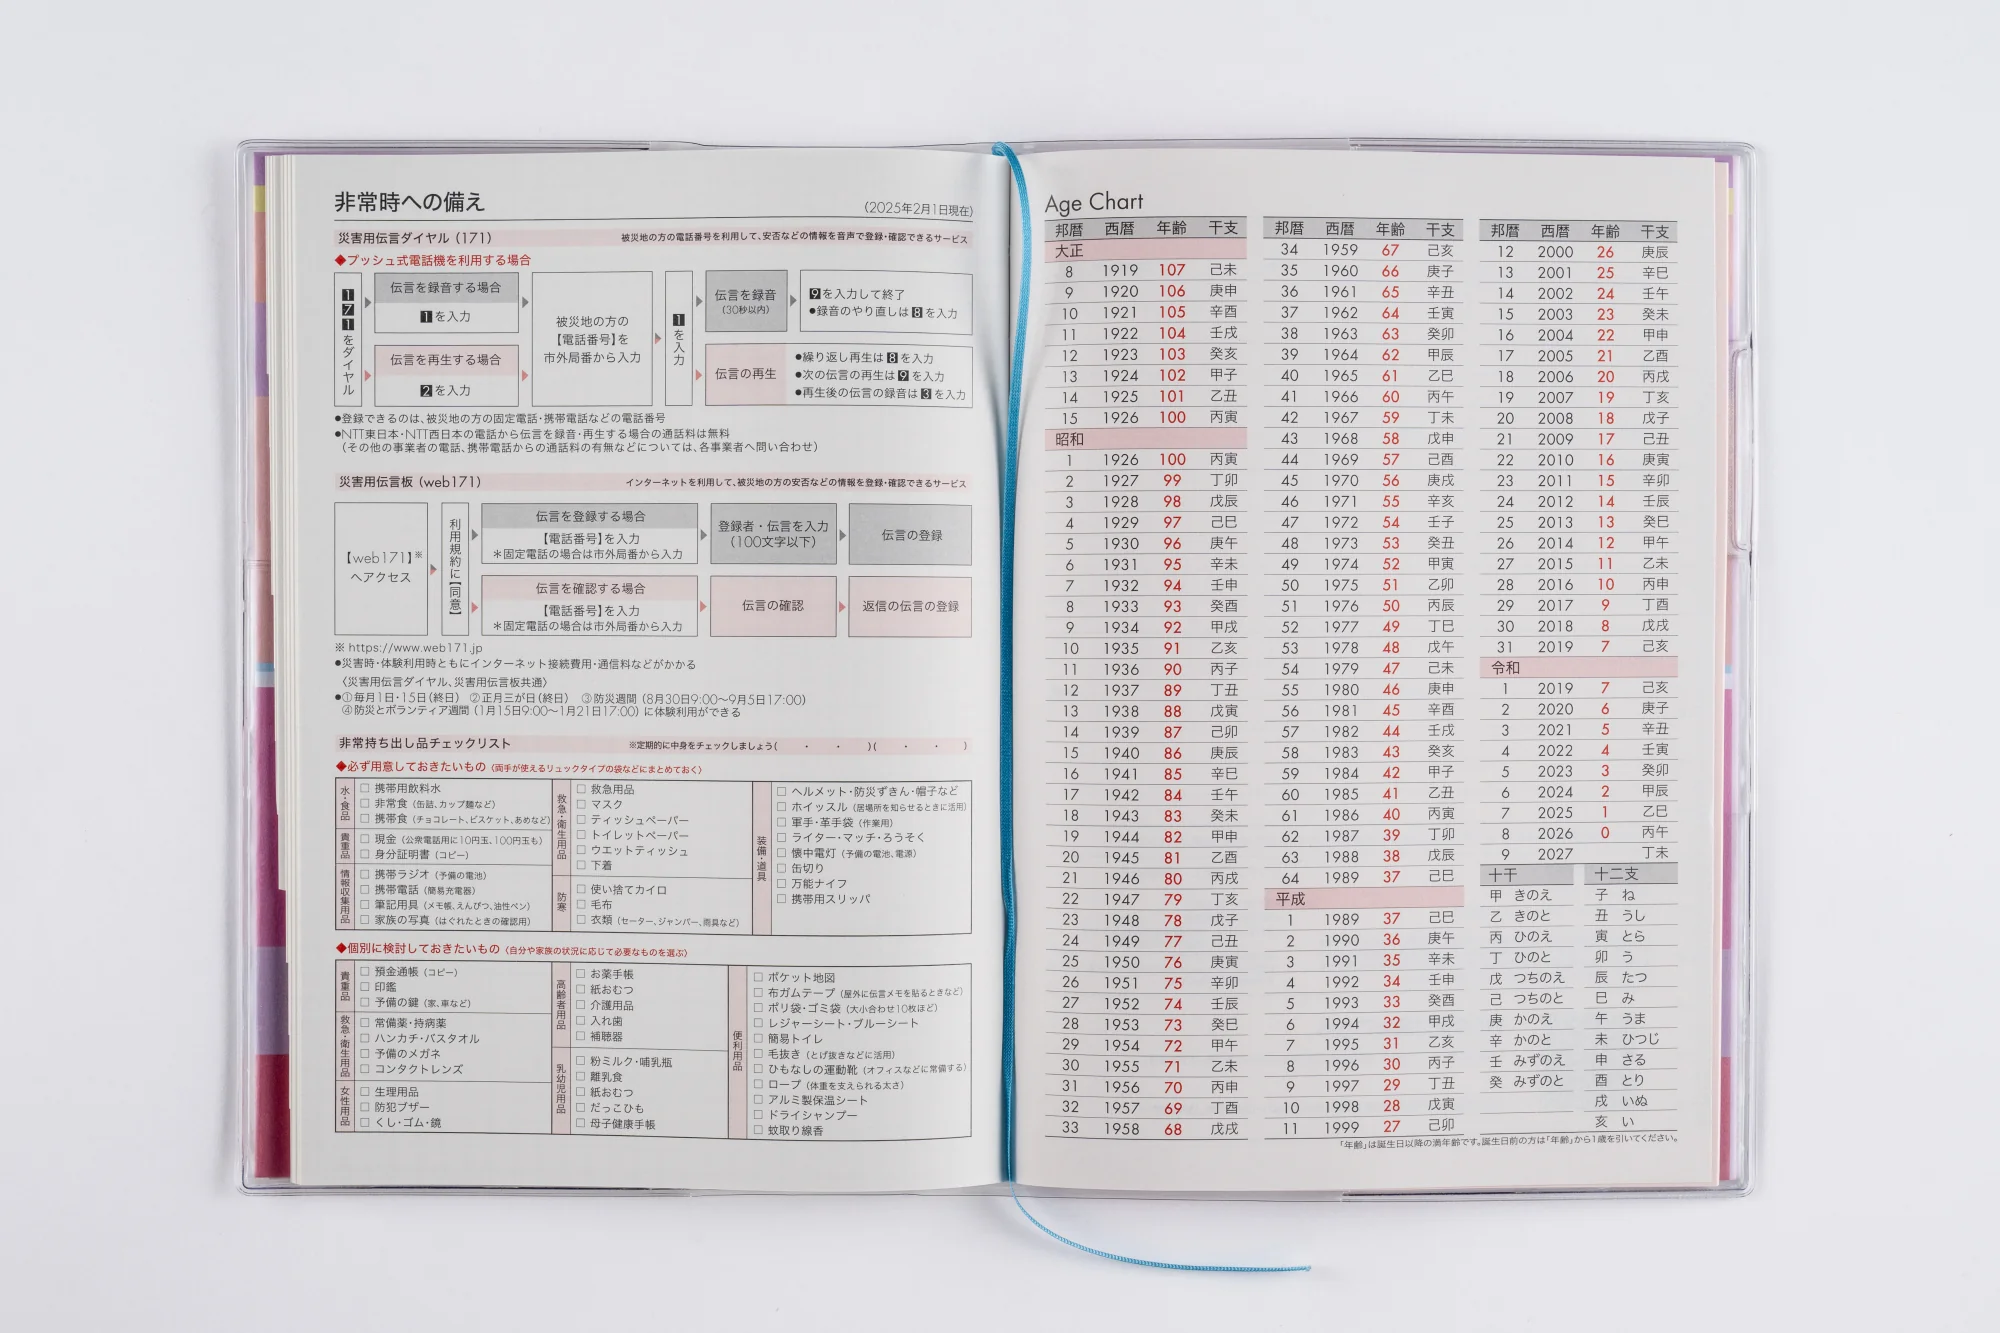 非常時への備え
(2025年2月1日現在)
災害用伝言ダイヤル (171)
被災地の方の電話番号を利用して、安否などの情報を音声で登録・確認できるサービス
◆プッシュ式電話機を利用する場合
171をダイヤル
伝言を録音する場合
1を入力
伝言を再生する場合
2を入力
被災地の方の
【電話番号】を
市外局番から入力
1を入力
伝言を録音
(30秒以内)
9を入力して終了
●録音のやり直しは8を入力
伝言の再生
●繰り返し再生は8を入力
●次の伝言の再生は9を入力
●再生後の伝言の録音は3を入力
●登録できるのは、被災地の方の固定電話・携帯電話などの電話番号
●NTT東日本・NTT西日本の電話から伝言を録音・再生する場合の通話料は無料
(その他の事業者の電話、携帯電話からの通話料の有無などについては、各事業者へ問い合わせ)
災害用伝言板 (web171)
インターネットを利用して、被災地の方の安否などの情報を登録・確認できるサービス
【web171】※
へアクセス
利用規約に【同意】
伝言を登録する場合
【電話番号】を入力
＊固定電話の場合は市外局番から入力
登録者・伝言を入力
(100文字以下)
伝言の登録
伝言を確認する場合
【電話番号】を入力
＊固定電話の場合は市外局番から入力
伝言の確認
返信の伝言の登録
※ https://www.web171.jp
●災害時・体験利用時ともにインターネット接続費用・通信料などがかかる
〈災害用伝言ダイヤル、災害用伝言板共通〉
●①毎月1日・15日(終日) ②正月三が日(終日) ③防災週間 (8月30日9:00～9月5日17:00)
④防災とボランティア週間 (1月15日9:00～1月21日17:00) に体験利用ができる
非常持ち出し品チェックリスト
※定期的に中身をチェックしましょう( ・ ・ )( ・ ・ )
◆必ず用意しておきたいもの (両手が使えるリュックタイプの袋などにまとめておく)
水・食品
□ 携帯用飲料水
□ 非常食 (缶詰、カップ麺など)
□ 携帯食 (チョコレート、ビスケット、あめなど)
貴重品
□ 現金 (公衆電話用に10円玉、100円玉も)
□ 身分証明書 (コピー)
情報収集用品
□ 携帯ラジオ (予備の電池)
□ 携帯電話 (簡易充電器)
□ 筆記用具 (メモ帳、えんぴつ、油性ペン)
□ 家族の写真 (はぐれたときの確認用)
救急・衛生用品
□ 救急用品
□ マスク
□ ティッシュペーパー
□ トイレットペーパー
□ ウエットティッシュ
□ 下着
防寒
□ 使い捨てカイロ
□ 毛布
□ 衣類 (セーター、ジャンパー、雨具など)
装備・道具
□ ヘルメット・防災ずきん・帽子など
□ ホイッスル (居場所を知らせるときに活用)
□ 軍手・革手袋 (作業用)
□ ライター・マッチ・ろうそく
□ 懐中電灯 (予備の電池、電源)
□ 缶切り
□ 万能ナイフ
□ 携帯用スリッパ
◆個別に検討しておきたいもの (自分や家族の状況に応じて必要なものを選ぶ)
貴重品
□ 預金通帳 (コピー)
□ 印鑑
□ 予備の鍵 (家、車など)
救急・衛生用品
□ 常備薬・持病薬
□ ハンカチ・バスタオル
□ 予備のメガネ
□ コンタクトレンズ
女性用品
□ 生理用品
□ 防犯ブザー
□ くし・ゴム・鏡
高齢者用品
□ お薬手帳
□ 紙おむつ
□ 介護用品
□ 入れ歯
□ 補聴器
乳幼児用品
□ 粉ミルク・哺乳瓶
□ 離乳食
□ 紙おむつ
□ だっこひも
□ 母子健康手帳
便利用品
□ ポケット地図
□ 布ガムテープ (屋外に伝言メモを貼るときなど)
□ ポリ袋・ゴミ袋 (大小合わせ10枚ほど)
□ レジャーシート・ブルーシート
□ 簡易トイレ
□ 毛抜き (とげ抜きなどに活用)
□ ひもなしの運動靴 (オフィスなどに常備する)
□ ロープ (体重を支えられる太さ)
□ アルミ製保温シート
□ ドライシャンプー
□ 蚊取り線香
Age Chart
邦暦 西暦 年齢 干支
大正
8 1919 107 己未
9 1920 106 庚申
10 1921 105 辛酉
11 1922 104 壬戌
12 1923 103 癸亥
13 1924 102 甲子
14 1925 101 乙丑
15 1926 100 丙寅
昭和
1 1926 100 丙寅
2 1927 99 丁卯
3 1928 98 戊辰
4 1929 97 己巳
5 1930 96 庚午
6 1931 95 辛未
7 1932 94 壬申
8 1933 93 癸酉
9 1934 92 甲戌
10 1935 91 乙亥
11 1936 90 丙子
12 1937 89 丁丑
13 1938 88 戊寅
14 1939 87 己卯
15 1940 86 庚辰
16 1941 85 辛巳
17 1942 84 壬午
18 1943 83 癸未
19 1944 82 甲申
20 1945 81 乙酉
21 1946 80 丙戌
22 1947 79 丁亥
23 1948 78 戊子
24 1949 77 己丑
25 1950 76 庚寅
26 1951 75 辛卯
27 1952 74 壬辰
28 1953 73 癸巳
29 1954 72 甲午
30 1955 71 乙未
31 1956 70 丙申
32 1957 69 丁酉
33 1958 68 戊戌
邦暦 西暦 年齢 干支
34 1959 67 己亥
35 1960 66 庚子
36 1961 65 辛丑
37 1962 64 壬寅
38 1963 63 癸卯
39 1964 62 甲辰
40 1965 61 乙巳
41 1966 60 丙午
42 1967 59 丁未
43 1968 58 戊申
44 1969 57 己酉
45 1970 56 庚戌
46 1971 55 辛亥
47 1972 54 壬子
48 1973 53 癸丑
49 1974 52 甲寅
50 1975 51 乙卯
51 1976 50 丙辰
52 1977 49 丁巳
53 1978 48 戊午
54 1979 47 己未
55 1980 46 庚申
56 1981 45 辛酉
57 1982 44 壬戌
58 1983 43 癸亥
59 1984 42 甲子
60 1985 41 乙丑
61 1986 40 丙寅
62 1987 39 丁卯
63 1988 38 戊辰
64 1989 37 己巳
平成
1 1989 37 己巳
2 1990 36 庚午
3 1991 35 辛未
4 1992 34 壬申
5 1993 33 癸酉
6 1994 32 甲戌
7 1995 31 乙亥
8 1996 30 丙子
9 1997 29 丁丑
10 1998 28 戊寅
11 1999 27 己卯
邦暦 西暦 年齢 干支
12 2000 26 庚辰
13 2001 25 辛巳
14 2002 24 壬午
15 2003 23 癸未
16 2004 22 甲申
17 2005 21 乙酉
18 2006 20 丙戌
19 2007 19 丁亥
20 2008 18 戊子
21 2009 17 己丑
22 2010 16 庚寅
23 2011 15 辛卯
24 2012 14 壬辰
25 2013 13 癸巳
26 2014 12 甲午
27 2015 11 乙未
28 2016 10 丙申
29 2017 9 丁酉
30 2018 8 戊戌
31 2019 7 己亥
令和
1 2019 7 己亥
2 2020 6 庚子
3 2021 5 辛丑
4 2022 4 壬寅
5 2023 3 癸卯
6 2024 2 甲辰
7 2025 1 乙巳
8 2026 0 丙午
9 2027 丁未
十干
甲 きのえ
乙 きのと
丙 ひのえ
丁 ひのと
戊 つちのえ
己 つちのと
庚 かのえ
辛 かのと
壬 みずのえ
癸 みずのと
十二支
子 ね
丑 うし
寅 とら
卯 う
辰 たつ
巳 み
午 うま
未 ひつじ
申 さる
酉 とり
戌 いぬ
亥 い
「年齢」は誕生日以降の満年齢です。誕生日前の方は「年齢」から1歳を引いてください。